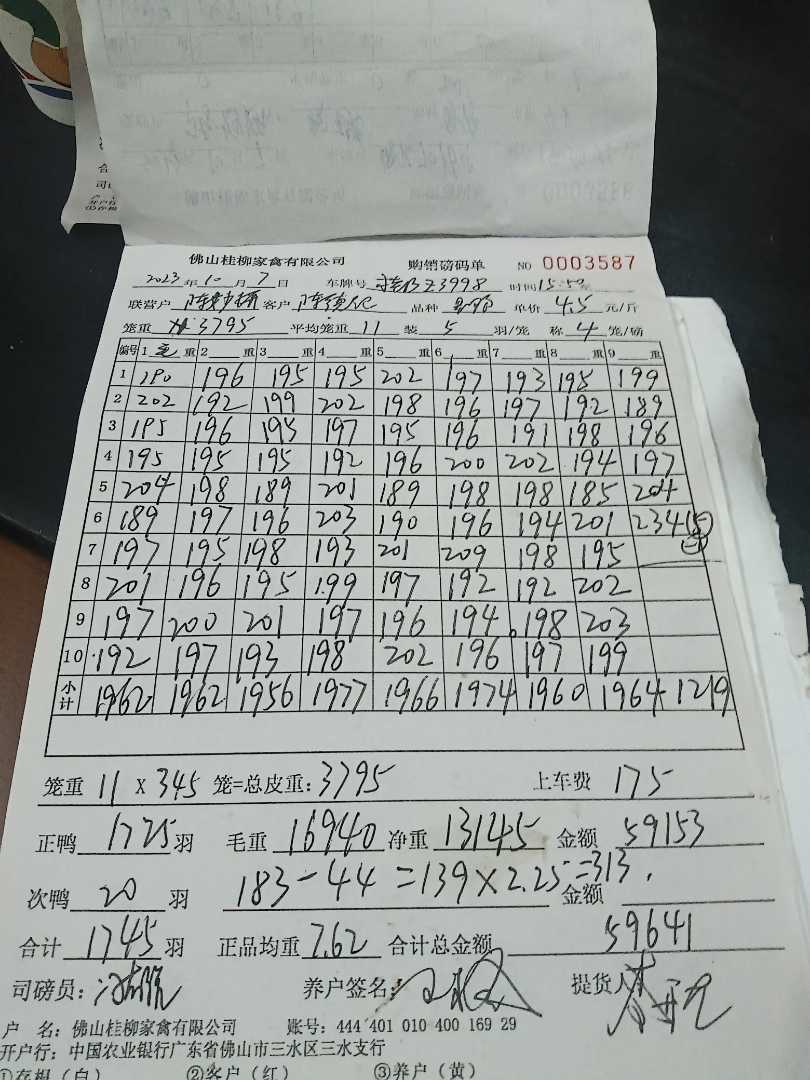 佛山桂柳家禽有限公司 购销磅码单 NO 0003587
2023年10月7日 车牌号 Z3998 时间15:5
联营户 陈 客户 陈 品种 单价 4.5 元/斤
笼重 3795 平均笼重 11 装 5 羽/笼 称 4 笼/磅
编号 1 毛 重 2 重 3 重 4 重 5 重 6 重 7 重 8 重 9 重
1 190 196 195 195 202 197 193 198 199
2 202 192 199 202 198 196 197 192 189
3 195 196 195 197 195 196 191 198 196
4 195 195 195 192 196 200 202 194 197
5 204 198 189 201 189 198 198 185 204
6 189 197 196 203 190 196 194 201 234 (5
7 197 195 198 193 201 209 198 195
8 201 196 195 199 197 192 192 202
9 197 200 201 197 196 194 198 203
10 192 197 193 198 202 196 197 199
小计 1962 1962 1956 1977 1966 1974 1960 1964 1219
笼重 11 X 345 笼=总皮重: 3795 上车费 175
正鸭 1725 羽 毛重 16940 净重 13145 金额 59153
次鸭 20 羽 183-44=139×2.25=313 金额
合计 1745 羽 正品均重 7.62 合计总金额 59641
司磅员: 养户签名: 提货人
户 名: 佛山桂柳家禽有限公司 账号: 444 401 010 400 169 29
开户行: 中国农业银行广东省佛山市三水区三水支行
①存根（白） ②客户（红） ③养户（黄）